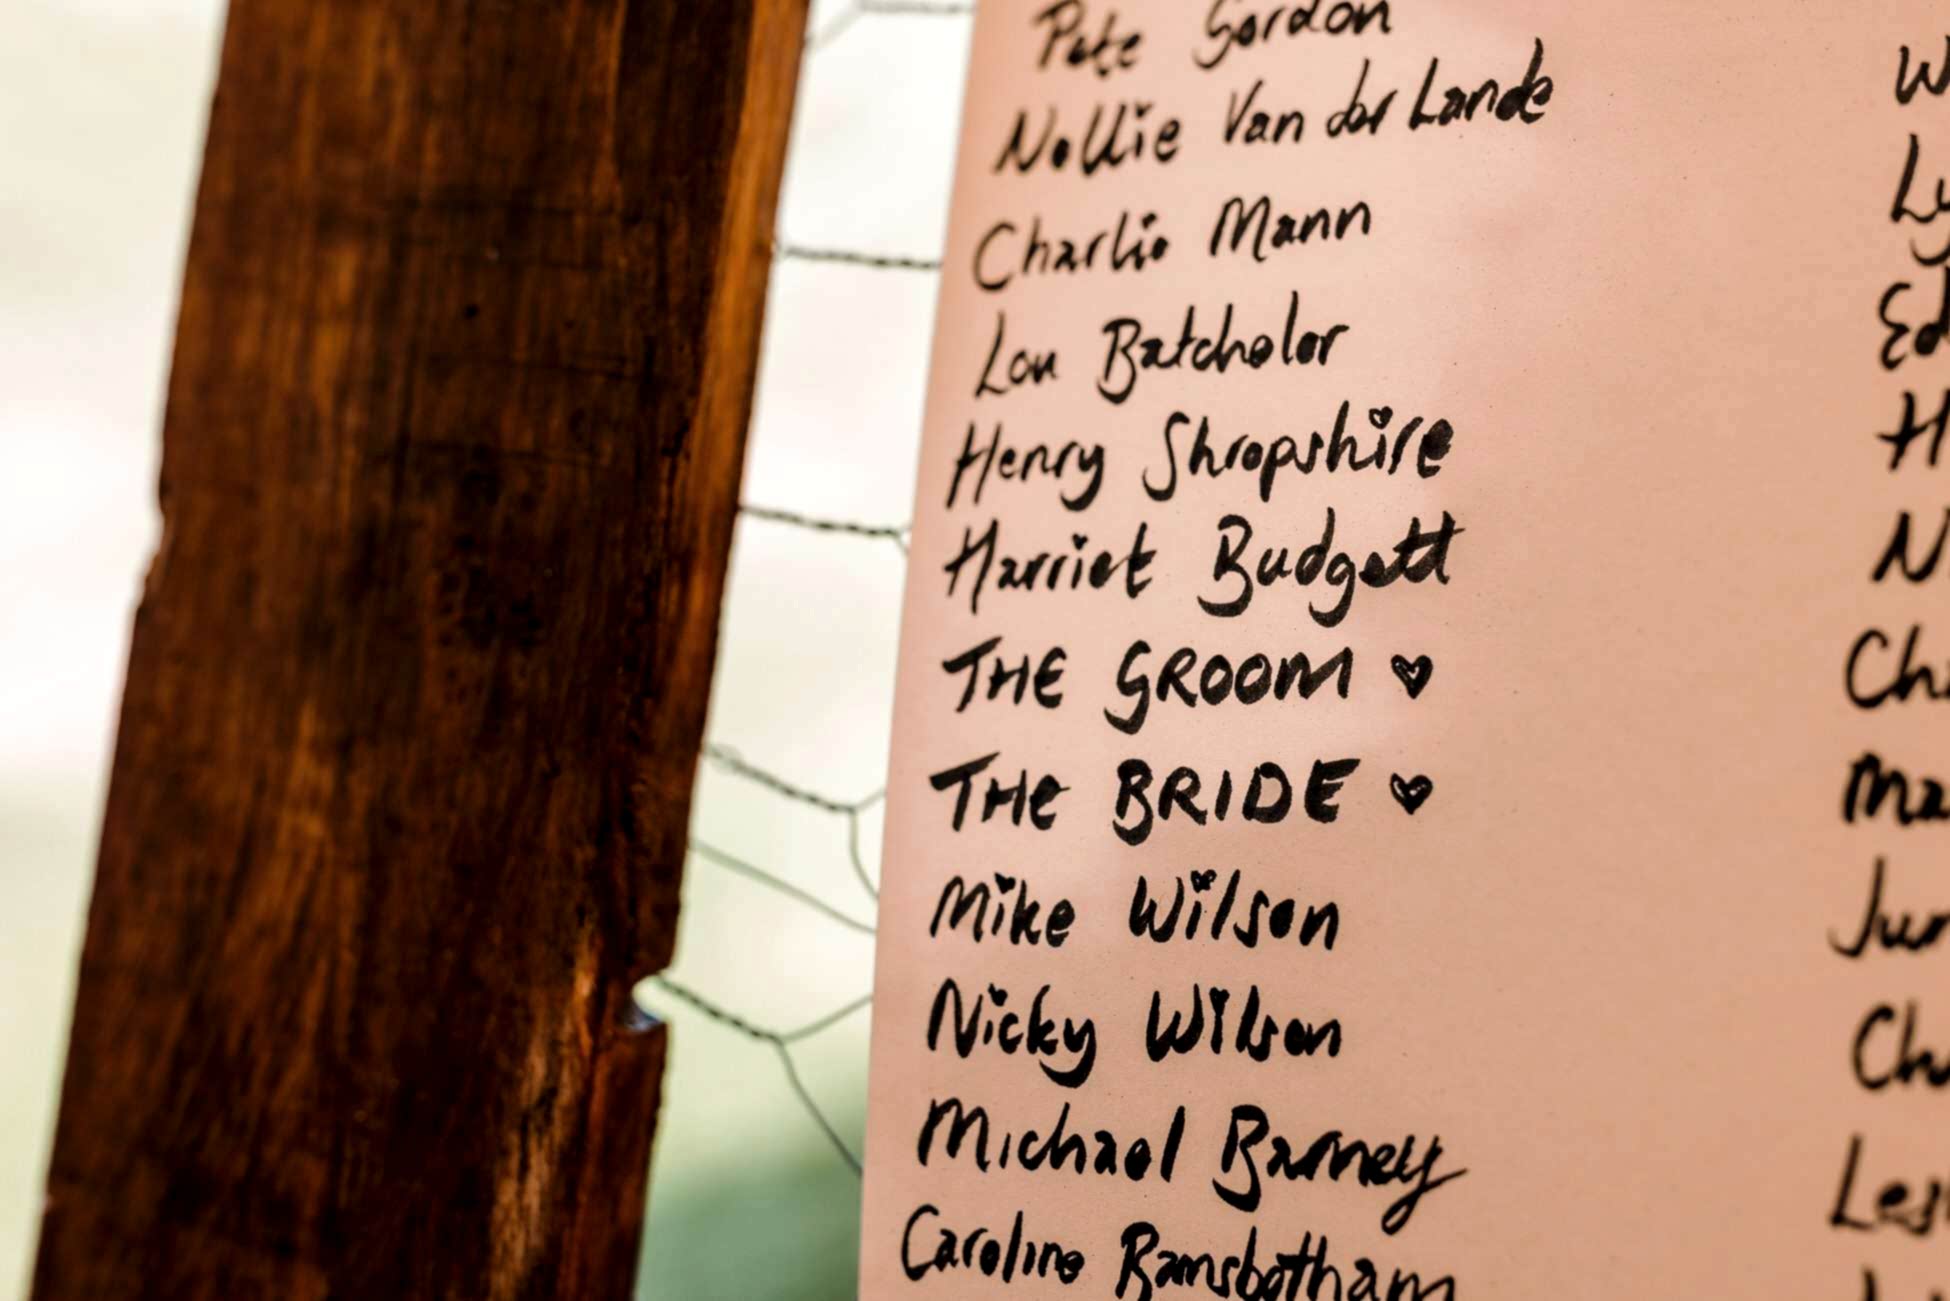 Pete Gordon
Nollie Van der Lande
Charlie Mann
Lou Batchelor
Henry Shropshire
Harriet Budgett
THE GROOM ♥
THE BRIDE ♥
Mike Wilson
Nicky Wilson
Michael Barney
Caroline Ramsbotham
W
Ly
Ed
H
N
Ch
Ma
Jun
Ch
Les